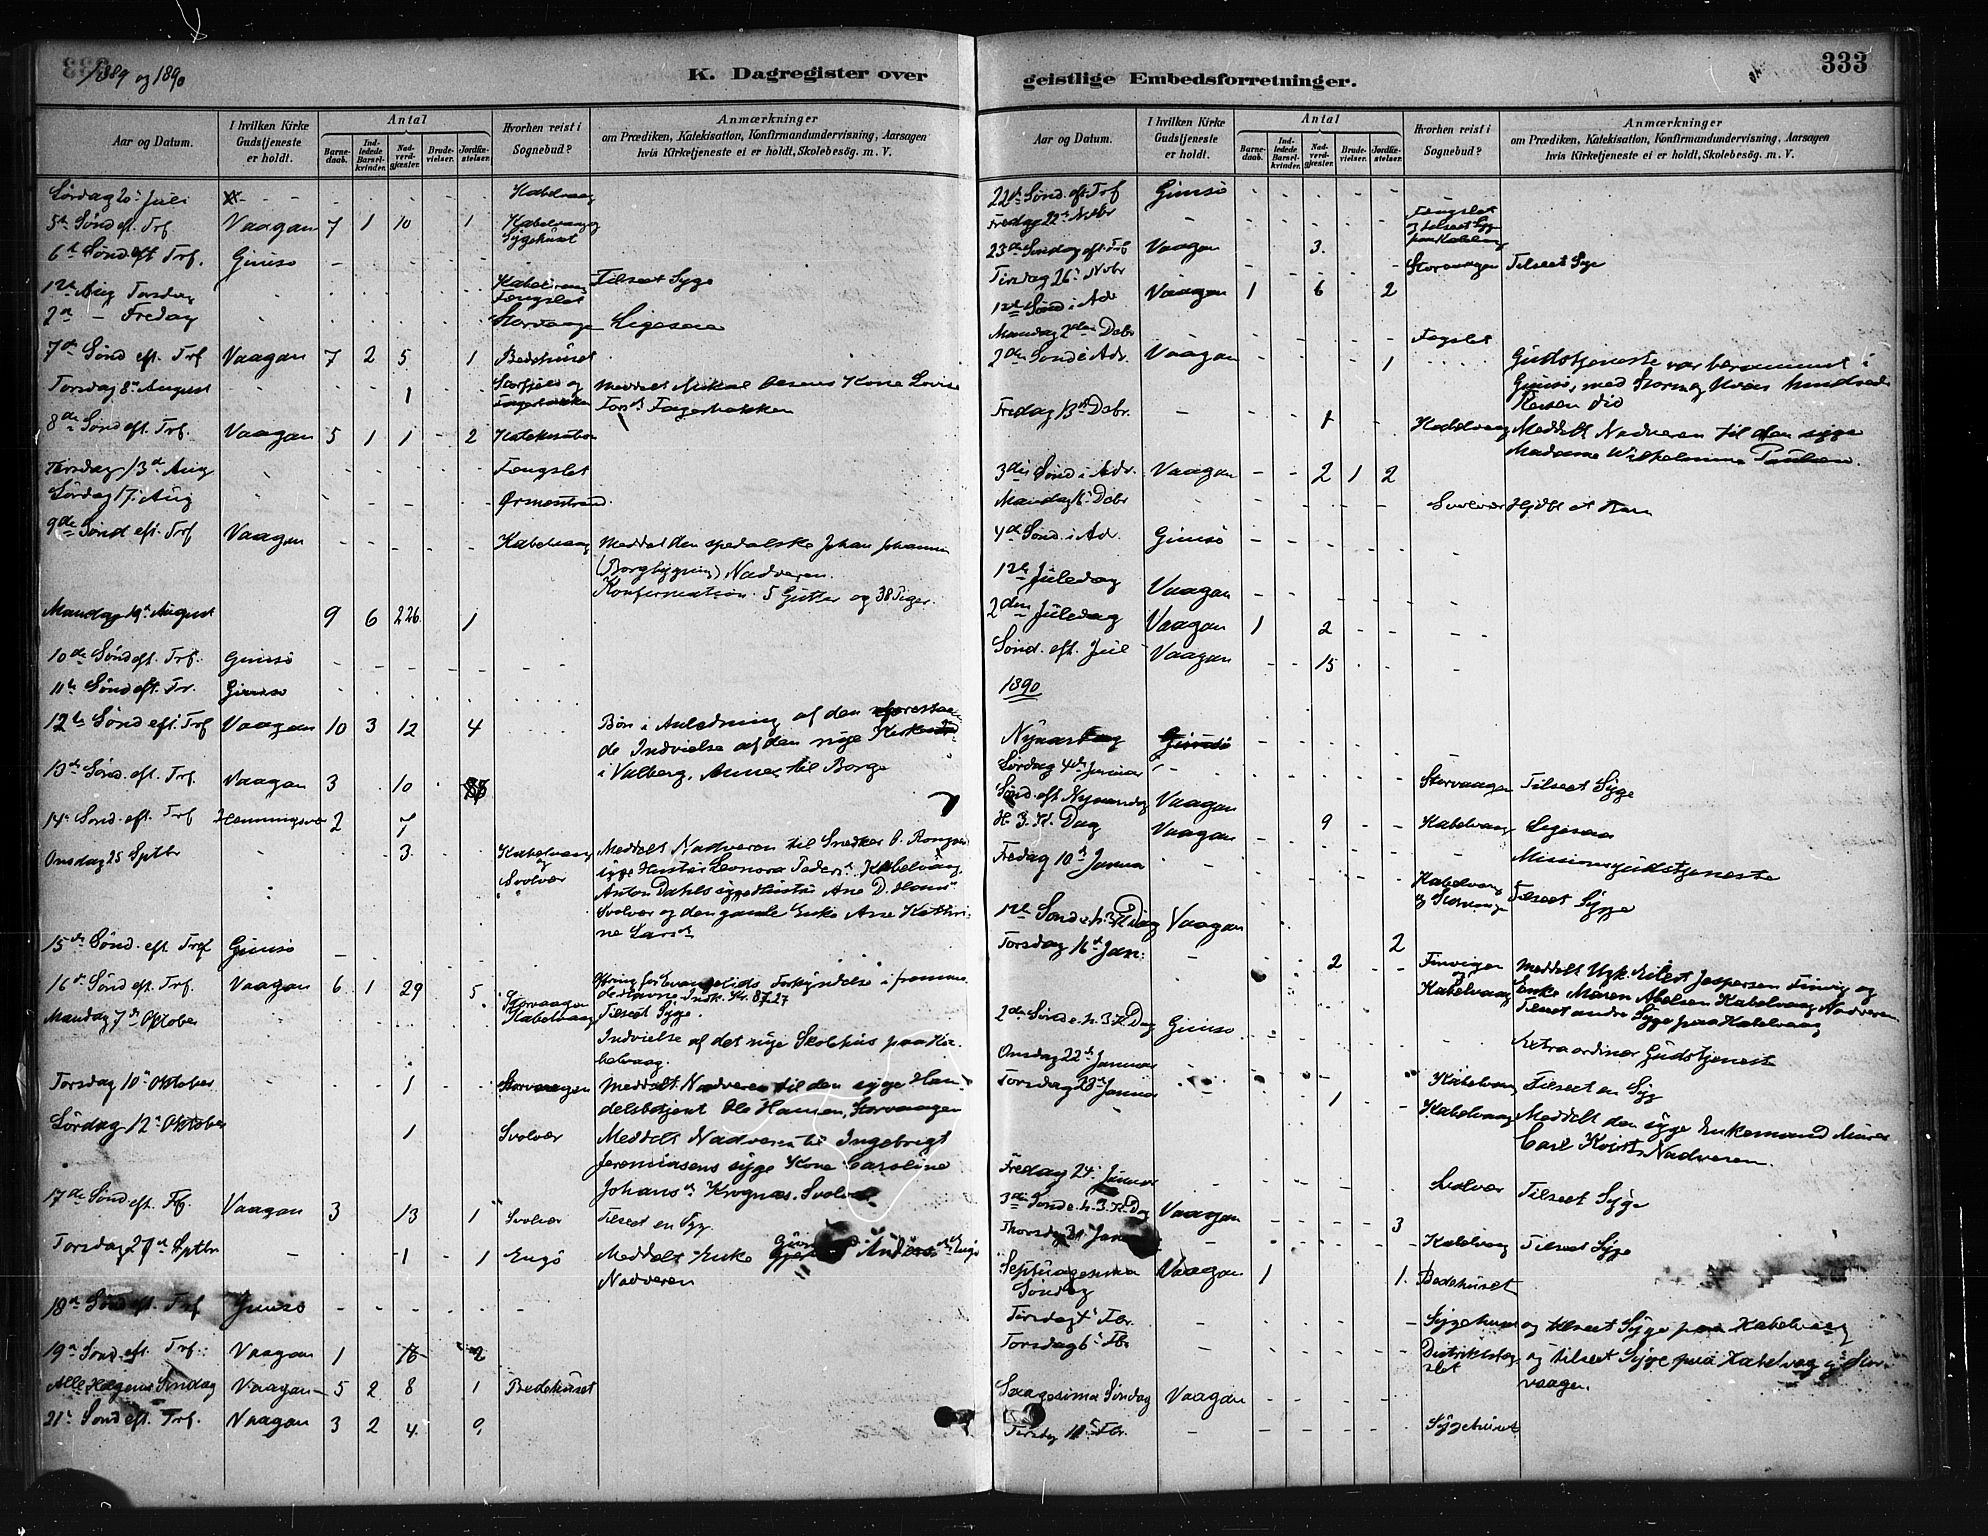 1889 og 1890
K. Dagregister over
Aar og Datum.
I hvilken Kirke Gudstjeneste er holdt.
Antal
Barnedaab.
Indledede Barselkvinder.
Nadverdgjæster.
Brudevielser.
Jordfæstelser.
Hvorhen reist i Sognebud?
Anmærkninger
om Prædiken, Katekisation, Konfirmandundervisning, Aarsagen
hvis Kirketjeneste ei er holdt, Skolebesøg. m. V.
Lørdag 20 Juli - - - - - Kabelvaag
5te Sønd eft. Trf Vaagan 7 1 10 1 Kabelvaag
Sygehuset
6te Sønd eft Trf. Gimsø - - - - -
1ste Aug Torsdag Kabelvaag Tilseet Syge
Fængslet
2den - Fredag Storvaagen Ligesaa
7de Sønd eft. Trf Vaagan 7 2 5 1 Bedehuset
Torsdag 8de August 1 Storfjeld og Meddelt Mikal Olsens Kone Lovise
Torsd. Fagerbakken
8de Sønd eft. Trf. Vaagan 5 1 1 - 2 Katekisation
Tirsdag 13de Aug - - - - - Fængslet
Lørdag 17 Aug - - - - - Ørmostrand
9de Sønd eft. Trf Vaagan - - - - - Kabelvaag Meddelt den spedalske Johan Johannes
(Borgbygning) Nadveren.
Konfirmation 5 Gutter og 38 Piger.
Mandag 19de August 9 6 226 1
10de Sønd eft. Trf. Gimsø - - - - -
11te Sønd eft. Tr. Gimsø
12te Sønd eft Trf Vaagan 10 3 12 4 Bøn i Anledning af den forestaaen-
de Indvielse af den nye Kirke
i Valberg, Annex til Borge
13de Sønd. eft. Trf. Vaagan 3 10
14de Sønd. eft. Trf Henningsvær 2 7
Onsdag 25 Sptbr 3 Kabelvaag Meddelt Nadveren til Snedker
og syge Hustru Leonora Peders. Kabelvaag,
Svolvær Anton Dahls syge Hustru Ane D. Hans
Svolvær og den gamle Enke Ane Kathri-
ne Larsd.
15de Sønd. eft Trf Gimsø - - - - -
16de Sønd eft. Trf. Vaagan 6 1 29 5 Ofring for Evangeliets Forkyndelse i fremme-
de Havne Indk. Kr. 87.27
Mandag 7de Oktober Storvaagen Tilseet Syge.
Kabelvaag
Indvielse af det nye Skolehus paa Ka-
belvaag.
Torsdag 10de Oktober 1 Storvaagen Meddelt Nadveren til den syge Han-
delsbetjent Ole Hansen, Storvaagen
Lørdag 12te Oktober 1 Svolvær Meddelt Nadveren til Ingebrigt
Jeremiasens syge Kone Caroline
Johansd. Krognæs. Svolvær
17de Sønd. eft. Trf. Vaagan 3 13 1 Svolvær Tilseet en Syg.
Torsdag 27de Sptbr - 1 1 Engø Meddelt Enke Andersd. Engø
Nadveren
18de Sønd eft. Trf Gimsø - - - - -
19de Sønd. eft. Trf. Vaagan 1 16 2
Alle Helgens Søndag Vaagan 5 2 8 1 Bedehuset
21de Sønd eft. Trf. Vaagan 3 2 4 9
333
geistlige Embedsforretninger.
Aar og Datum.
I hvilken Kirke Gudstjeneste er holdt.
Antal
Barnedaab.
Indledede Barselkvinder.
Nadverdgjæster.
Brudevielser.
Jordfæstelser.
Hvorhen reist i Sognebud?
Anmærkninger
om Prædiken, Katekisation, Konfirmandundervisning, Aarsagen
hvis Kirketjeneste ei er holdt, Skolebesøg. m. V.
22de Sønd. eft. Trf Gimsø - - - - -
Fredag 22de Novbr - - - - - Fængslet
og tilseet Syge
paa Kabelvaag
23de Søndag eft. Trf Vaagan 3.
Tirsdag 26de Novbr - - - - - Storvaagen Tilseet Syge
1ste Sønd i Adv Vaagan 1 6 2
Mandag 2den Decbr - Fægslet
2den Sønd i Adv. Vaagan 1 Gudstjeneste var berammet i
Gimsø, med Storm og Uveir hindrede
Reisen did
Fredag 13de Decbr. - 1 - Kabelvaag Meddelt Nadveren til den syge
Madame Wilhelmine Paulsen.
3die Sønd i Adv. Vaagan - - 2 1 2
Mandag 16 Decbr - - - - - Svolvær Hjdbt et Barn
4de Sønd. i Adv. Gimsø - - - - -
1ste Juledag Vaagan - - - - -
2den Juledag Vaagan 1 2 - -
Sønd. eft. Jul Vaagan - - 15 - -
1890
Nyaarsdag Gimsø - - - - -
Lørdag 4de Januar - - - - - Storvaagen Tilseet Syge
Sønd. eft Nyaarsdag Vaagan - - - - - Kabelvaag Ligesaa
H. 3. K. Dag Vaagan - - 9 - - Missionsgudstjeneste
Fredag 10de Januar - Kabelvaag Tilseet Syge
og Storvaagen
1ste Sønd e. h. 3 K Dag Vaagan 2
Torsdag 16de Jan: - 2 - Finvigen Meddelt Ugk. Eilert Jespersen Finvig og
og
Kabelvaag Enke Maren Abelsen Kabelvaag Nadveren
Tilseet andre Syge paa Kabelvaag
2den Sønd e. h. 3 K. Dag Gimsø - - - - - Extraordinær Gudstjeneste
Onsdag 22de Januar - - - - - Kabelvaag Tilseet en Syg
Torsdag 23de Januar 1 - Kabelvaag Meddelt den syge Enkemand Murer
Carl Kvist Nadveren.
Fredag 24. Januar - - - - - Svolvær Tilseet Syge
3die Sønd e. h. 3. K. Dag Vaagan - - - - 3
Thorsdag Jan - - - - - Kabelvaag Tilseet Syge
Septuagesima Vaagan 1 1. Bedehuset
Søndag
Tirsdag 4de Fbr. - - - - - Sygehuset og tilseet Syge paa Kabelvaag
Torsdag 6te Fbr - - - - - Distriktsfæng- og tilseet Syge paa Kabelvaag og Stor-
slet vaagen.
Sexagesima Søndag Vaagan
Tirsdag 11te Fbr. - - - - - Sygehuset